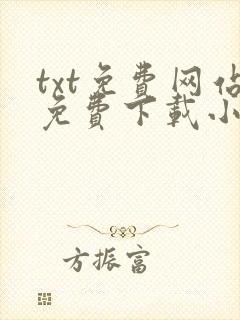 txt免費网站
免費下載小
方振富